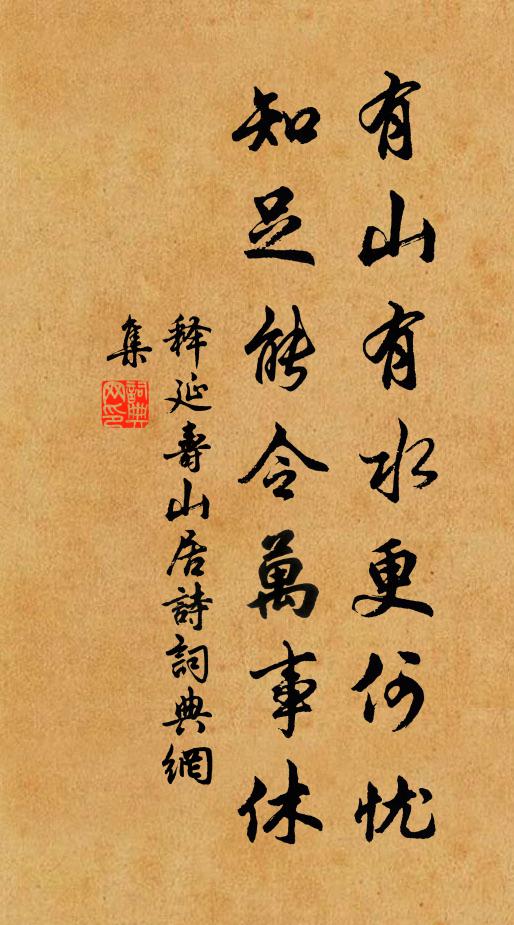 有山有水更何忧
知足能令萬事休
释延壽山居詩詞典網
集
詞典
网印